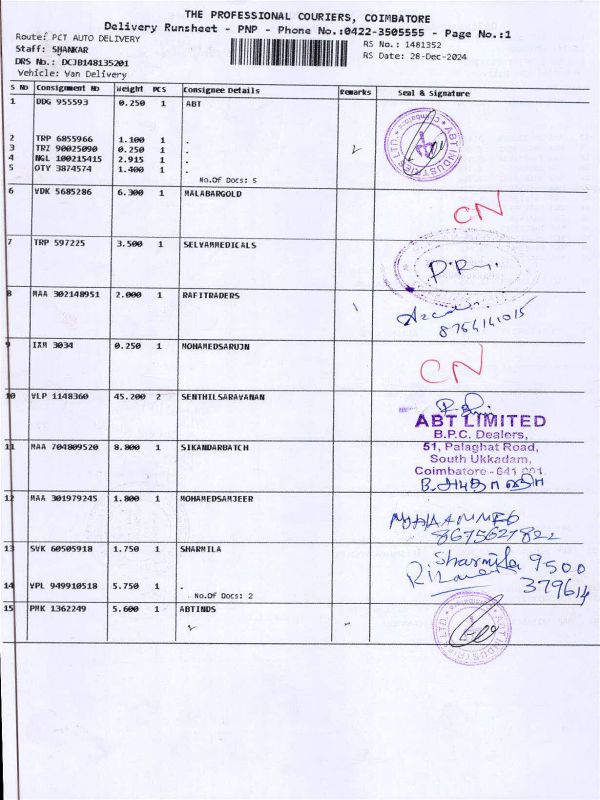 THE PROFESSIONAL COURIERS, COIMBATORE
Delivery Runsheet - PNP - Phone No.:0422-3505555 - Page No.:1
Route: PCT AUTO DELIVERY
RS No.: 1481352
Staff: SHANKAR
RS Date: 28-Dec-2024
DRS No.: DCJB148135201
Vehicle: Van Delivery
S No Consignment No Weight PCS Consignee Details Remarks Seal & Signature
1 DDG 955593 0.250 1 ABT
2 TRP 6855966 1.100 1 .
3 TRZ 90025090 0.250 1 .
4 NGL 100215415 2.915 1 .
5 OTY 3874574 1.400 1 .
No.Of Docs: 5
ABT INDUSTRIES LTD. Coimbatore
6 VDK 5685286 6.300 1 MALABARGOLD
CN
7 TRP 597225 3.500 1 SELVAMMEDICALS
8 MAA 302148951 2.000 1 RAFITRADERS
8764141015
9 IXM 3034 0.250 1 MOHAMEDSARUJN
CN
10 VLP 1148360 45.200 2 SENTHILSARAVANAN
ABT LIMITED
B.P.C. Dealers,
51, Palaghat Road,
South Ukkadam,
Coimbatore - 641 001.
11 MAA 704809520 8.800 1 SIKANDARBATCH
12 MAA 301979245 1.800 1 MOHAMEDSAMJEER
MOHAAMMED
8675627822
13 SVK 60505918 1.750 1 SHARMILA
Sharmila 9500
379614
14 VPL 949910518 5.750 1 .
No.Of Docs: 2
15 PMK 1362249 5.600 1 ABTINDS
ABT INDUSTRIES LTD.